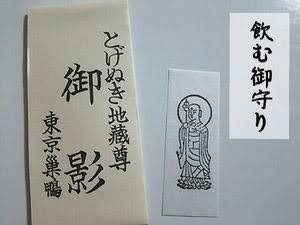 飲む御守り
とげぬき地蔵尊
御影
東京巣鴨